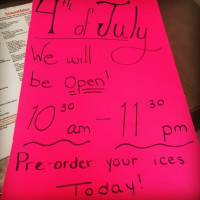 4th of July
We will
be Open!
10 30 am - 11 30 pm
Pre-order your ices
Today!